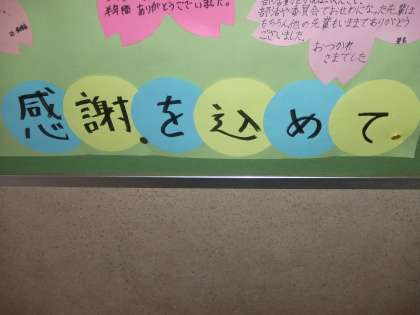 ありがとうございました。
部活や委員会でおせわになった先輩は
もちろん他の先輩もいままでありがとう
ございました
おつかれ
さまでした
感謝を込めて